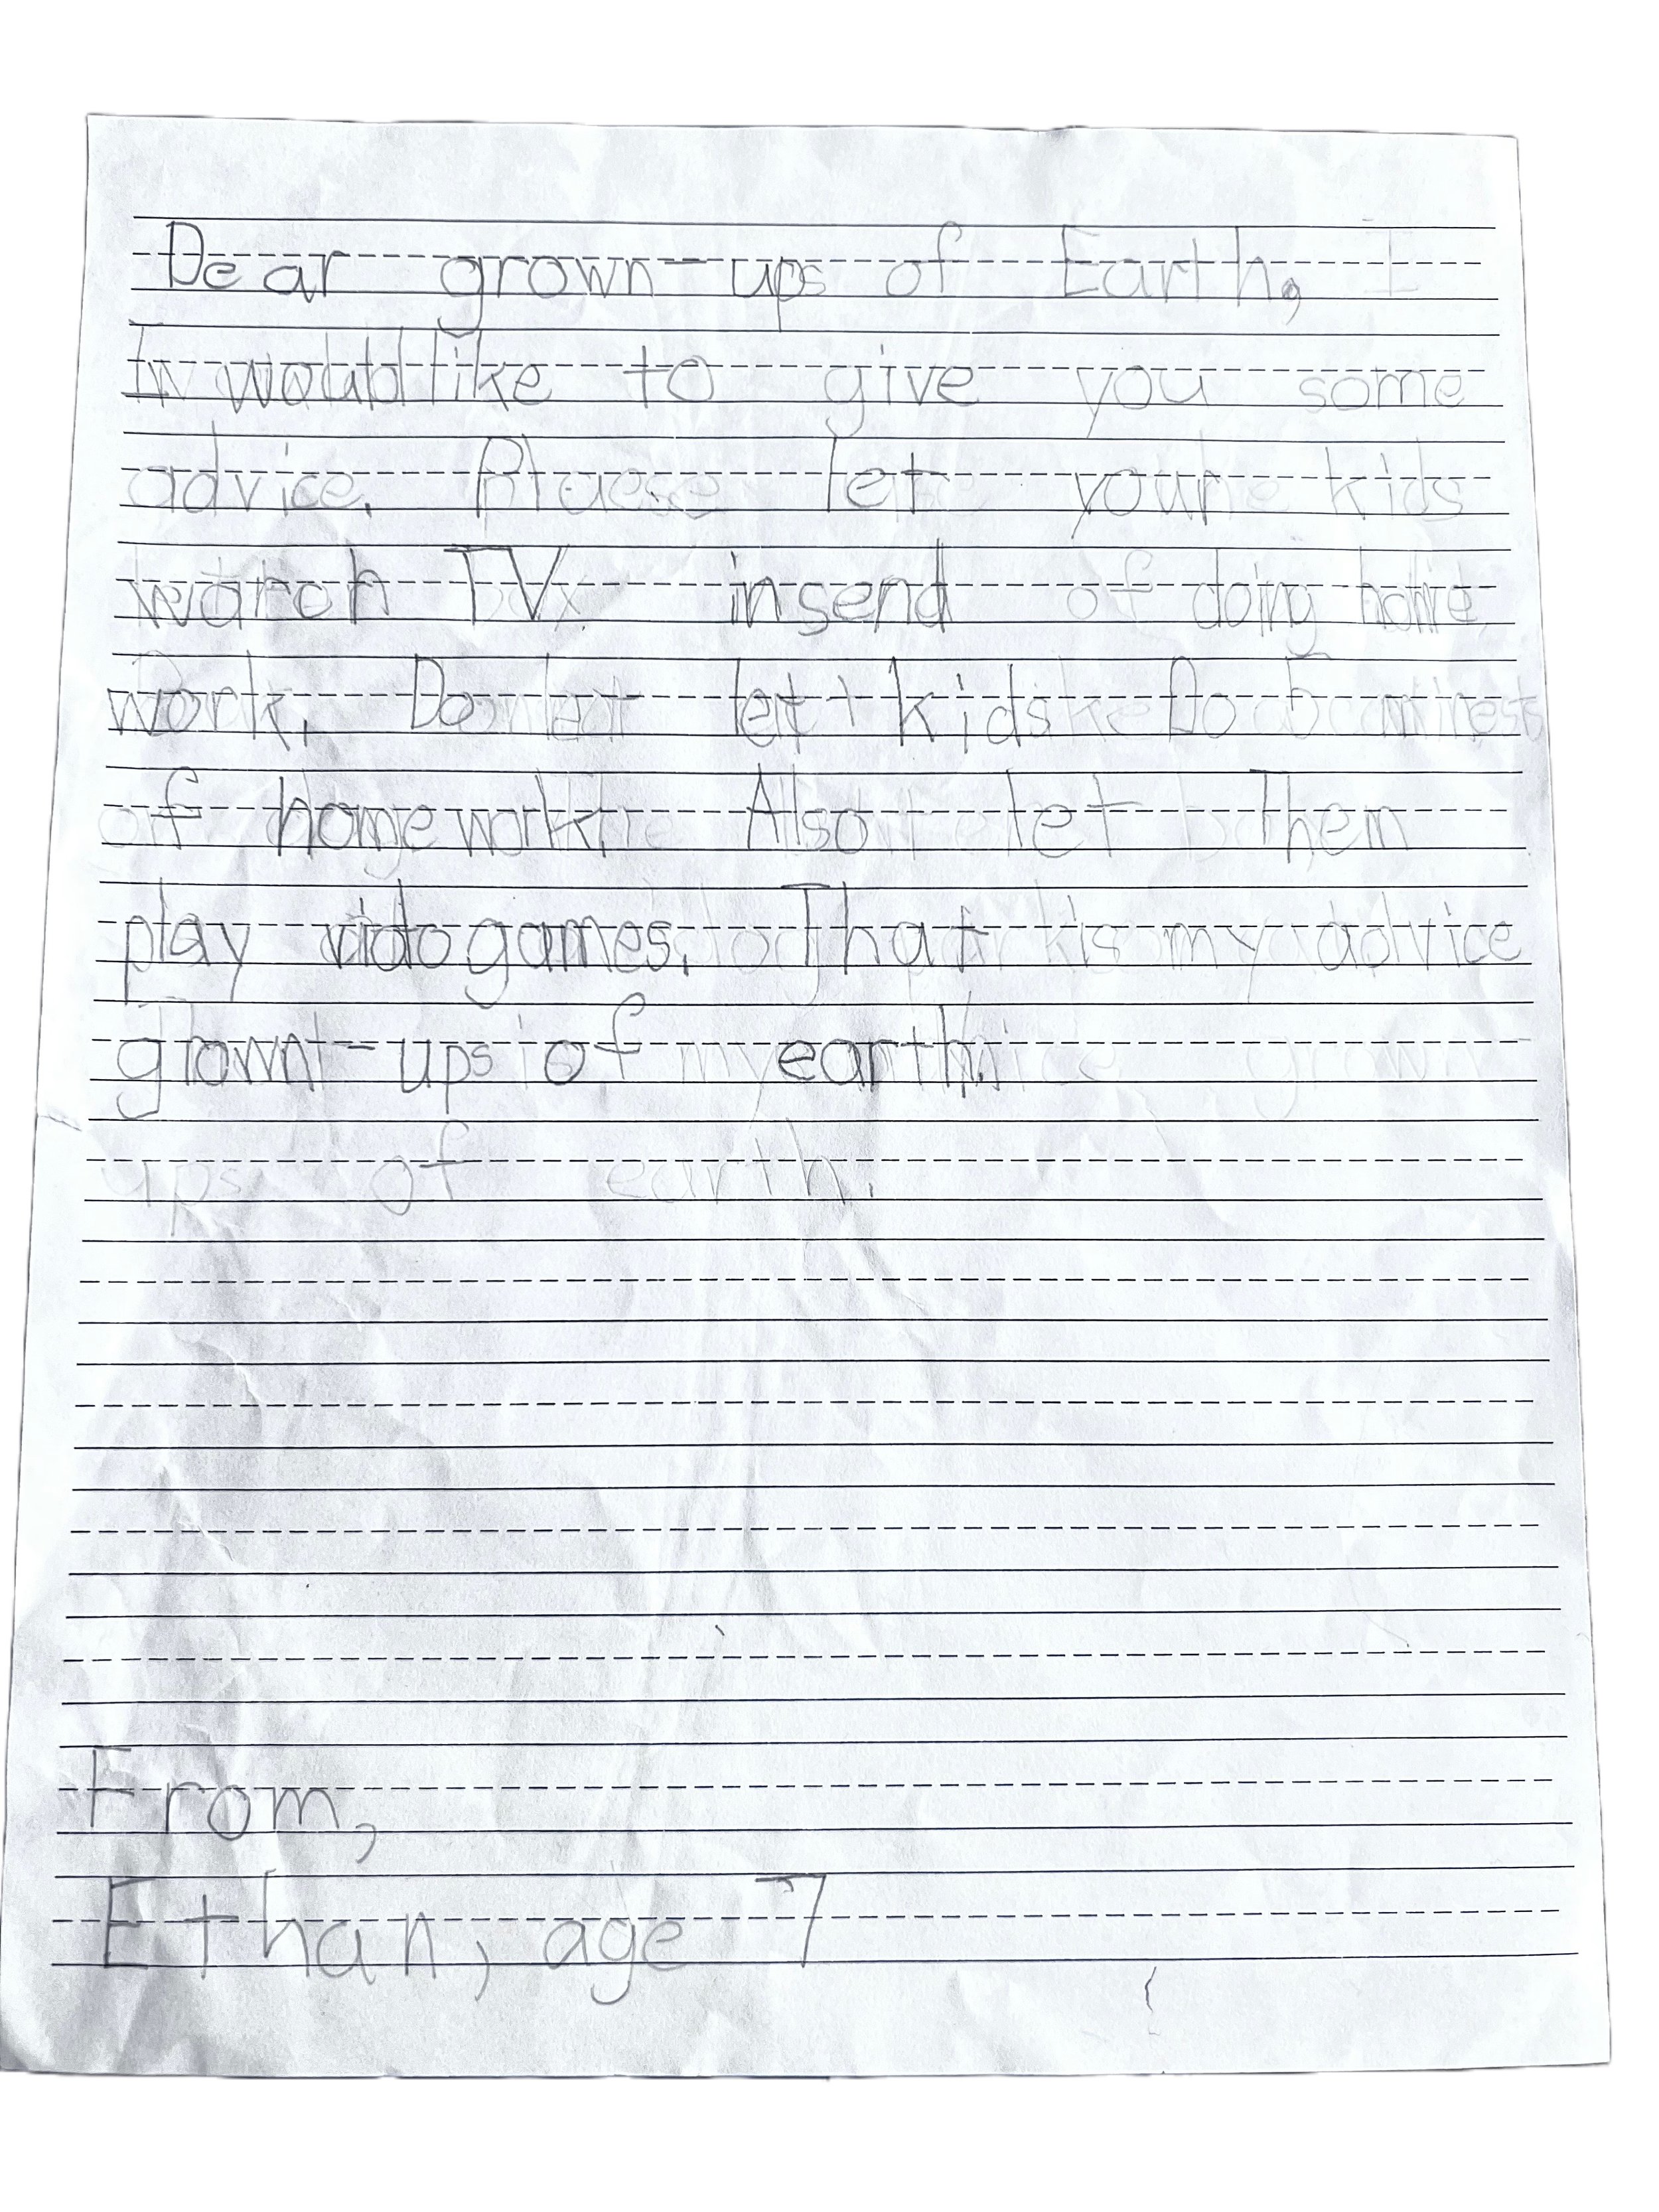 Dear grown-ups of Earth,
I would like to give you some
advice. Plaese let your kids
watch TV insend of doing home
work. Do let kids Do
of homework. Also let Them
play vido games. That is my advice
grown-ups of earth.
ups of earth.
From,
Ethan, age 7